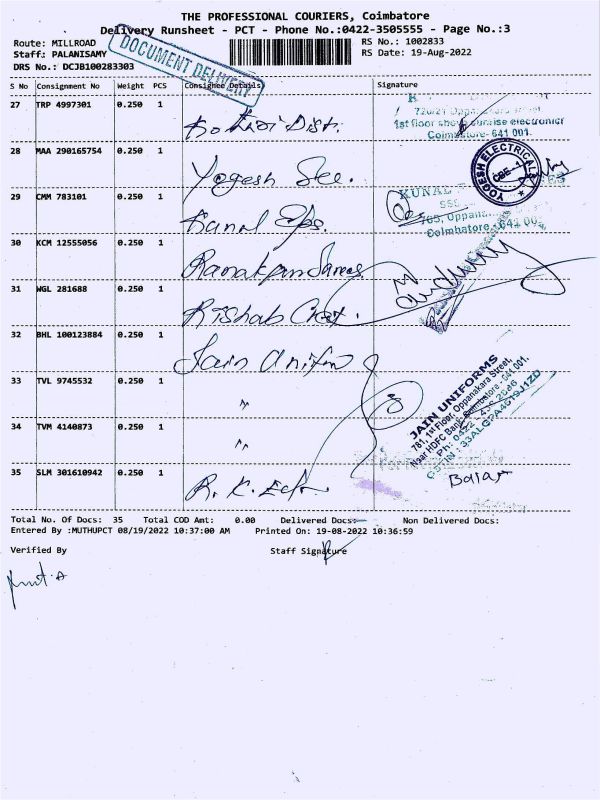 THE PROFESSIONAL COURIERS, Coimbatore
Delivery Runsheet - PCT - Phone No.:0422-3505555 - Page No.:3
Route: MILLROAD
RS No.: 1002833
Staff: PALANISAMY
RS Date: 19-Aug-2022
DRS No.: DCJB100283303
DOCUMENT DELIVERY
S No Consignment No Weight PCS Consignee Details Signature
27 TRP 4997301 0.250 1
1st floor above sunrise electronics
Coimbatore- 641 001.
28 MAA 290165754 0.250 1 Yogesh See.
YOGESH ELECTRICALS
CBE-1
29 CMM 783101 0.250 1 Kunal
KUNAL
765, Oppana
Coimbatore - 641 001
30 KCM 12555056 0.250 1
31 WGL 281688 0.250 1 Rishab
32 BHL 100123884 0.250 1 Jain Unifm
33 TVL 9745532 0.250 1 "
JAIN UNIFORMS
781, 1st Floor, Oppanakara Street,
Near HDFC Bank, Coimbatore - 641 001.
34 TVM 4140873 0.250 1 "
35 SLM 301610942 0.250 1 R. K.
Balaji
Total No. Of Docs: 35 Total COD Amt: 0.00 Delivered Docs: Non Delivered Docs:
Entered By :MUTHUPCT 08/19/2022 10:37:00 AM Printed On: 19-08-2022 10:36:59
Verified By Staff Signature